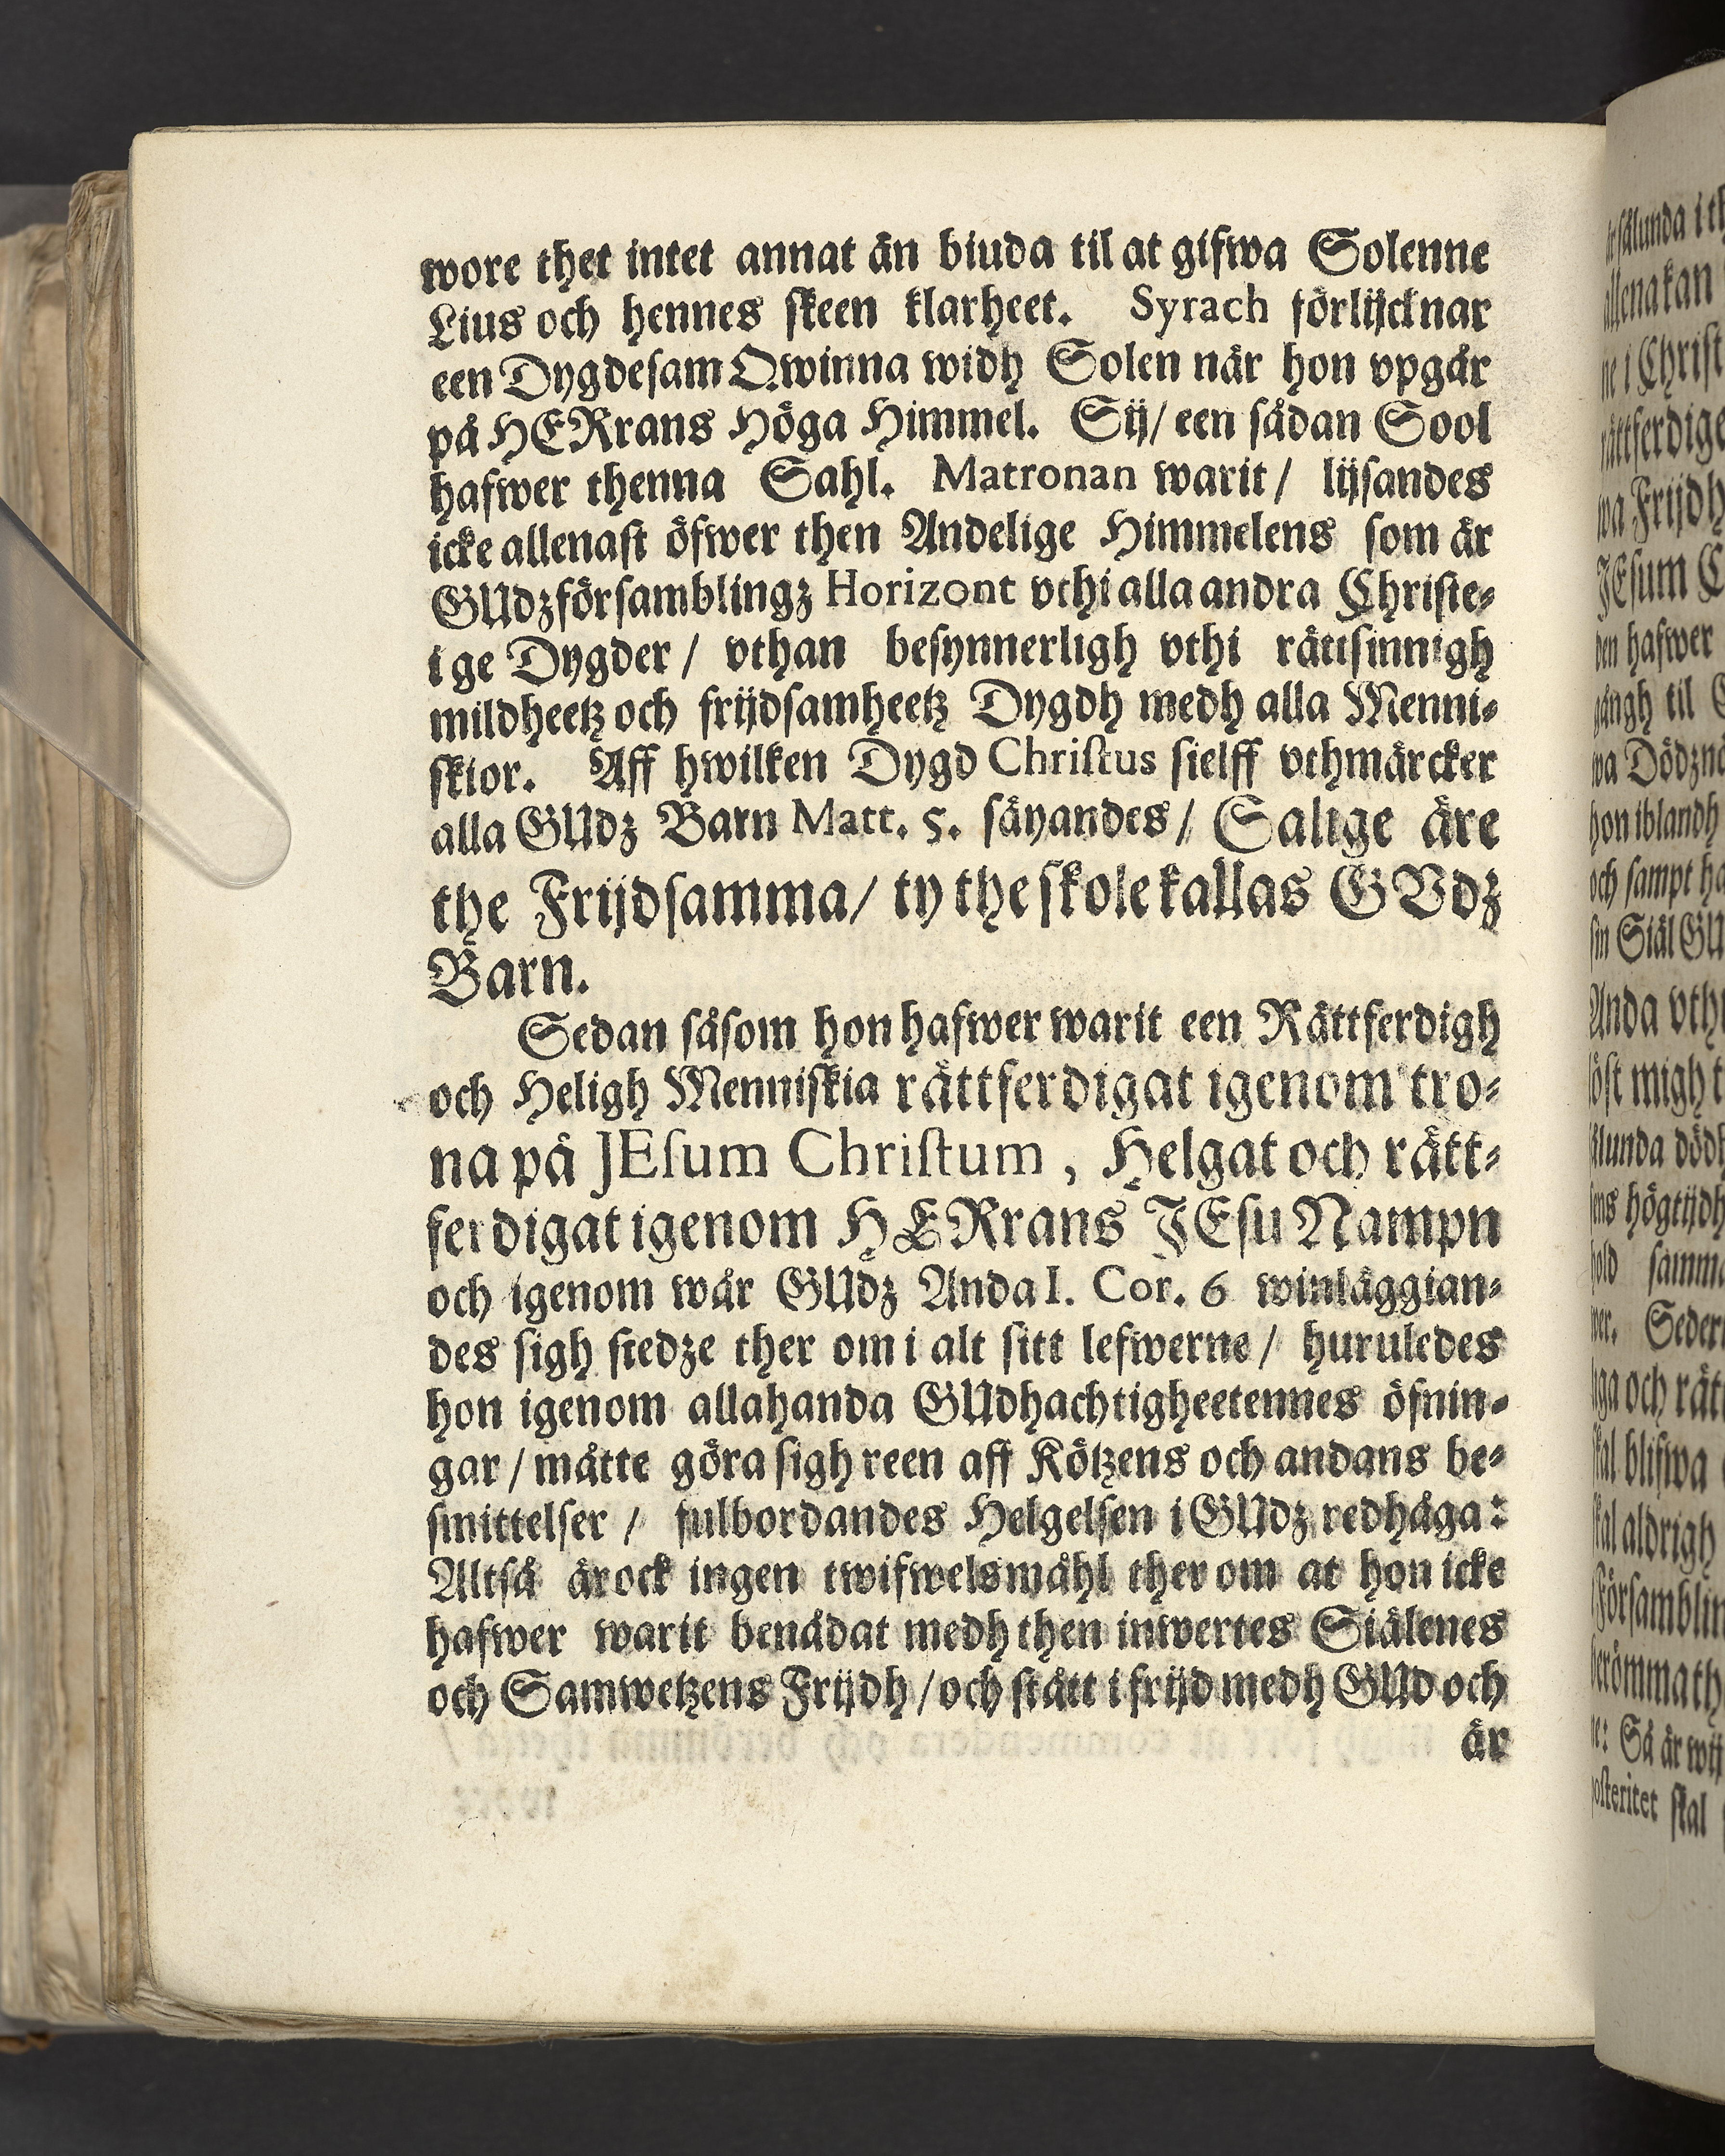 wore thet intet annat än biuda til at gifwa Solenne
Lius och hennes skeen klarheet. Syrach förlijcknar
een Dygdesam Qwinna widh Solen när hon vpgår
på HERrans Höga Himmel. Sij/ een sådan Sool
hafwer thenna Sahl. Matronan warit/ lijsandes
icke allenast öfwer then Andelige Himmelens som är
GUdzförsamblingz Horizont vthi alla andra Christe-
ige Dygder/ vthan besynnerligh vthi rättsinnigh
mildheetz och frijdsamheetz Dygdh medh alla Menni-
skior. Aff hwilken Dygd Christus sielff vthmärcker
alla GUdz Barn Matt. 5. säyandes/ Salige äre
the Frijdsamma/ ty the skole kallas GVdz
Barn.
Sedan såsom hon hafwer warit een Rättferdigh
och Heligh Menniskia rättferdigat igenom tro-
na på JEsum Christum, Helgat och rätt-
ferdigat igenom HERrans JEsu Nampn
och igenom wår GUdz Anda I. Cor. 6 winläggian-
des sigh stedze ther om i alt sitt lefwerne/ huruledes
hon igenom allahanda GUdhachtigheetennes öfnin-
gar/ måtte göra sigh reen aff Kötzens och andans be-
smittelser/ fulbordandes Helgelsen i GUdz redhåga:
Altså är ock ingen twifwelsmåhl ther om at hon icke
hafwer warit benådat medh then inwertes Siälenes
och Samwetzens Frijdh/ och stått i frijd medh GUd och
är